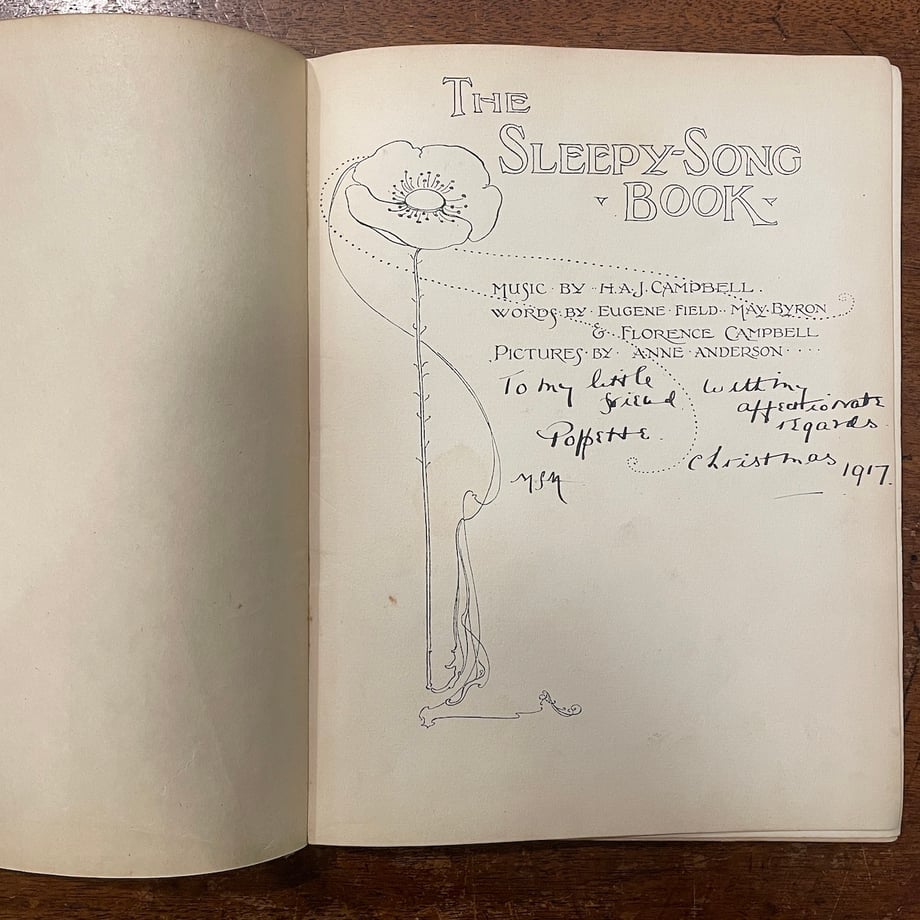 THE
SLEEPY-SONG
BOOK
MUSIC · BY · H.A.J. CAMPBELL.
WORDS · BY · EUGENE · FIELD · MAY · BYRON
& FLORENCE CAMPBELL
PICTURES · BY · ANNE · ANDERSON · · · ·
To my little
friend
Poppette.
With my
affectionate
regards.
Christmas 1917.